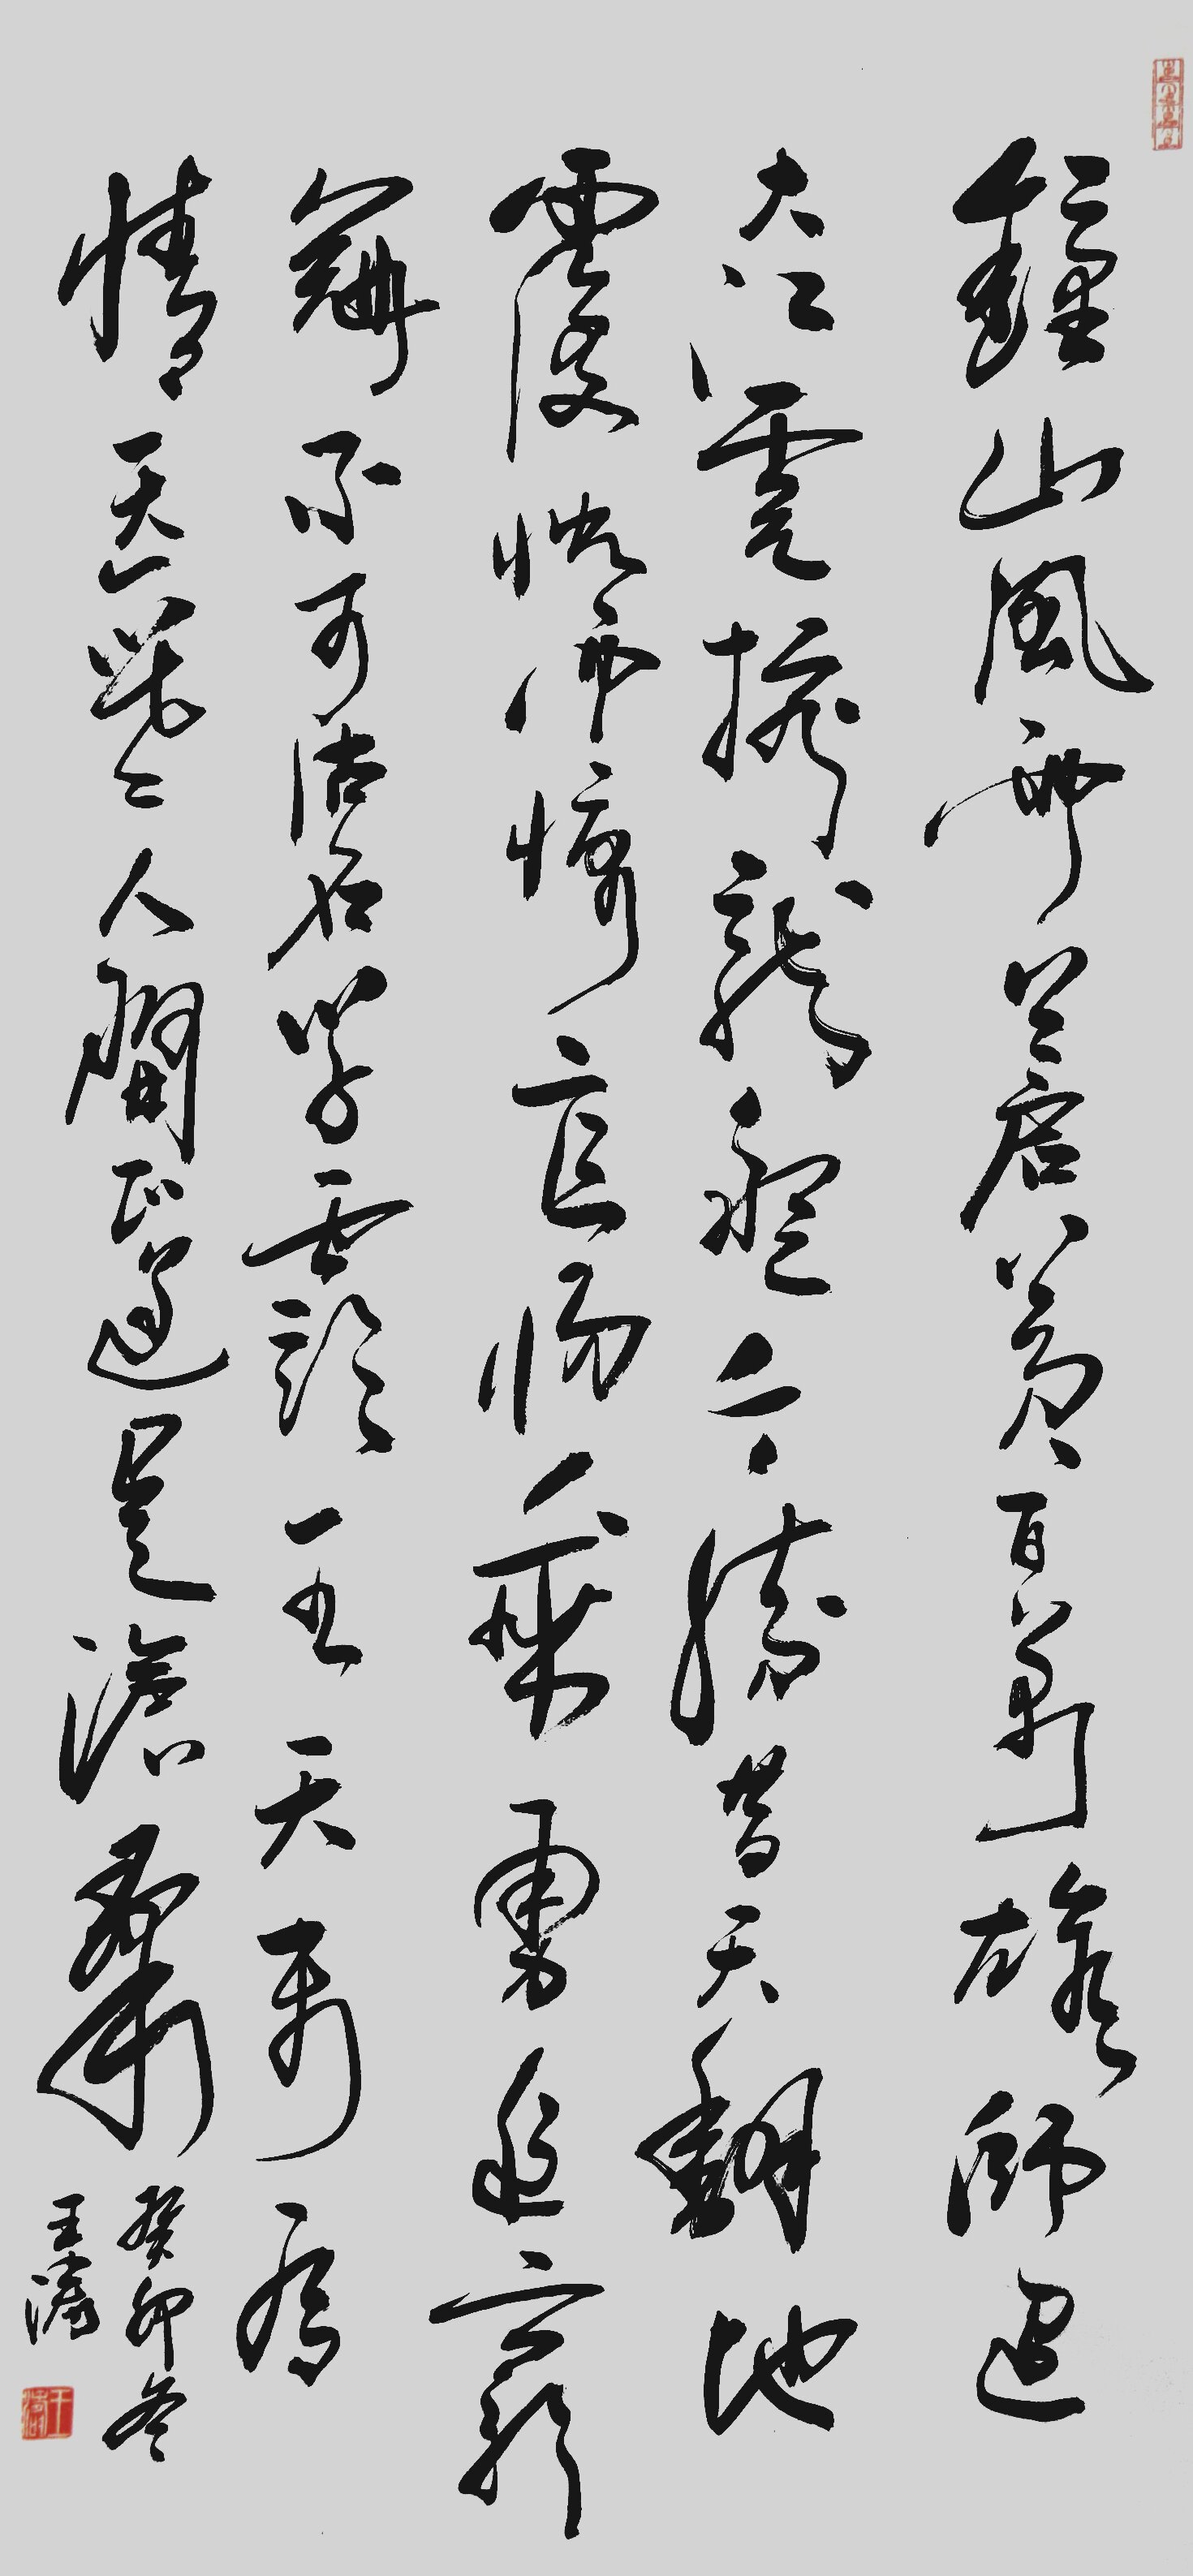 鐘山風雨起蒼黃百萬雄師過
大江虎據龍盤今勝昔天翻地
覆慨而慷宜將剩勇追窮
寇不可沽名學霸王天若有
情天亦老人間正道是滄桑
癸卯冬
王濤
王濤